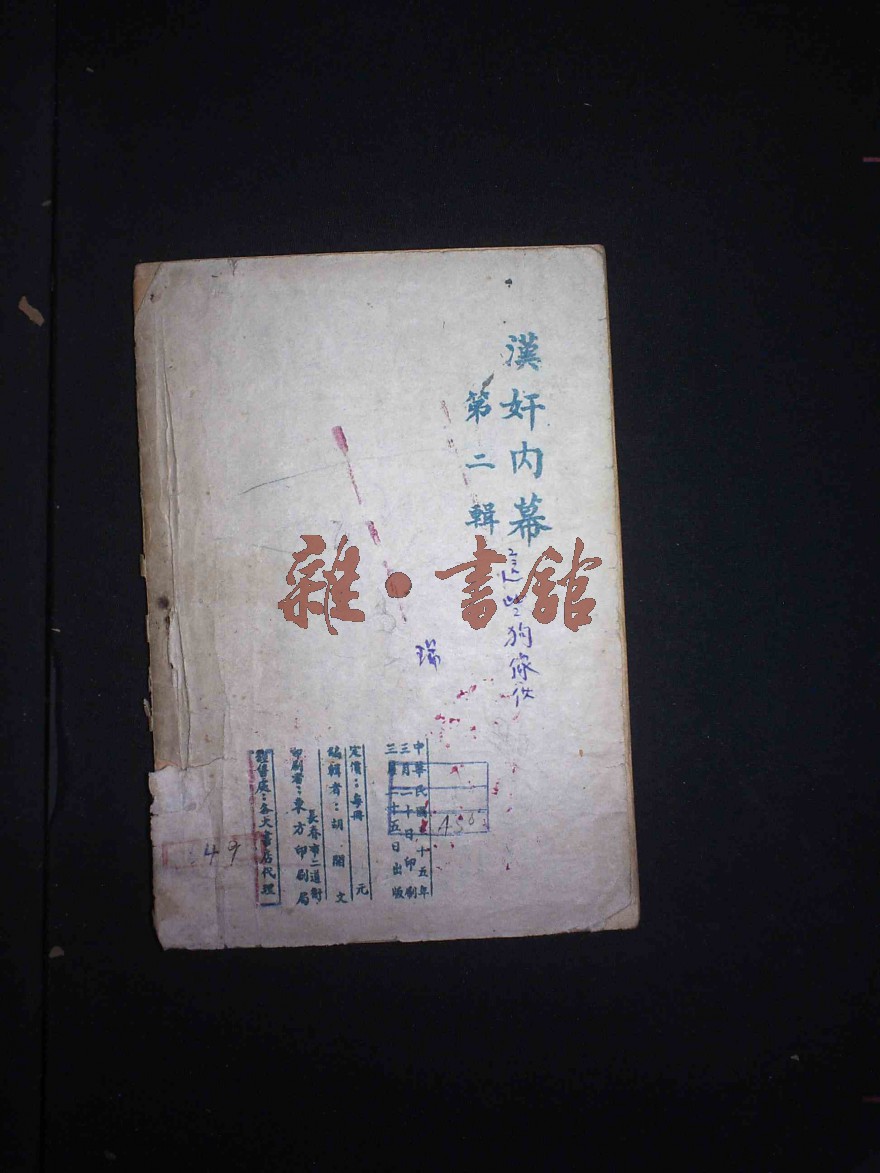 漢奸内幕
第二輯
這些狗傢伙
瑞
雜·書館
中華民國三十五年
三月二十日印刷
三月二十五日出版
定價:每冊 元
編輯者:胡 閣 文
長春市二道街
印刷者:東方印刷局
經售處:各大書店代理
A56
49